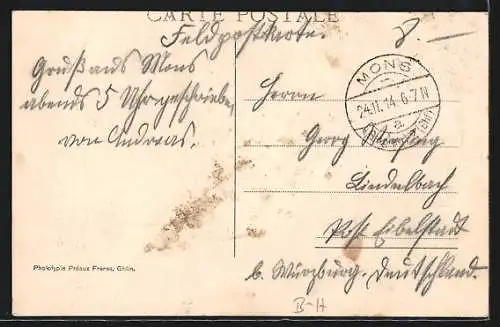 CARTE POSTALE
Feldpostkarte.
Gruß aus Mons
abends 5 Uhr geschrieben
von Andreas.
MONS
24.11.14. 6-7 N
a
Herrn
Georg
Lindelbach
Post Eibelstadt
b. Würzburg. Deutschland.
Phototypie Préaux Frères, Ghlin.
B-H